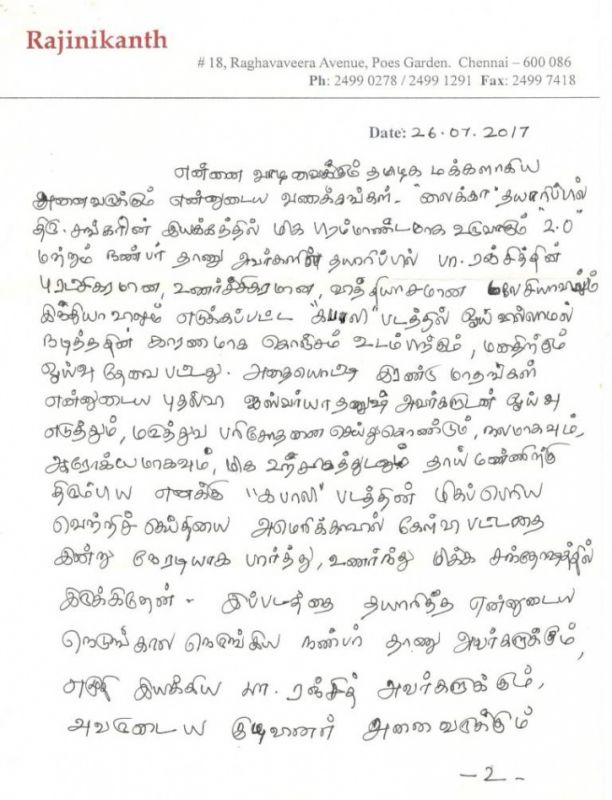 Rajinikanth
# 18, Raghavaveera Avenue, Poes Garden. Chennai – 600 086
Ph: 2499 0278 / 2499 1291 Fax: 2499 7418
Date: 26.07.2017
என்னை வாழ வைக்கும் தமிழக மக்களாகிய
அனைவருக்கும் என்னுடைய வணக்கங்கள். "லைக்கா" தயாரிப்பில்
திரு. சங்கரின் இயக்கத்தில் மிக பிரம்மாண்டமாக உருவாகும் "2.0"
மற்றும் நண்பர் தாணு அவர்களின் தயாரிப்பில் பா. ரஞ்சித்தின்
புரட்சிகரமான, உணர்ச்சிகரமான, வித்தியாசமான மலேசியாவிலும்
இந்தியாவிலும் எடுக்கப்பட்ட "கபாலி" படத்தில் ஓய்வில்லாமல்
நடித்ததின் காரணமாக கொஞ்சம் உடம்பிற்கும், மனதிற்கும்
ஓய்வு தேவைபட்டது. அதையொட்டி இரண்டு மாதங்கள்
என்னுடைய புதல்வி ஐஸ்வர்யா தனுஷ் அவர்களுடன் ஓய்வு
எடுத்தும், மருத்துவ பரிசோதனை செய்துகொண்டும், நலமாகவும்,
ஆரோக்யமாகவும், மிக உற்சாகத்துடனும் தாய் மண்ணிற்கு
திரும்பிய எனக்கு "கபாலி" படத்தின் மிகப்பெரிய
வெற்றிச் செய்தியை அமெரிக்காவில் கேள்விபட்டதை
இன்று நேரடியாக பார்த்து, உணர்ந்து மிக்க சந்தோஷத்தில்
இருக்கிறேன். இப்படத்தை தயாரித்த என்னுடைய
நெடுங்கால நெருங்கிய நண்பர் தாணு அவர்களுக்கும்,
எழுதி இயக்கிய பா. ரஞ்சித் அவர்களுக்கும்,
அவருடைய குழுவினர் அனைவருக்கும்
-2-